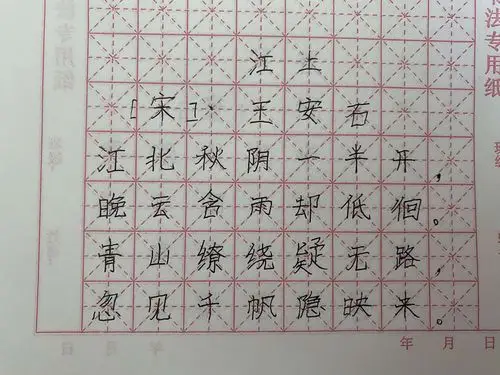 江上
[宋] 王安石
江北秋阴一半开,
晚云含雨却低徊。
青山缭绕疑无路,
忽见千帆隐映来。
年 月 日
法专用纸